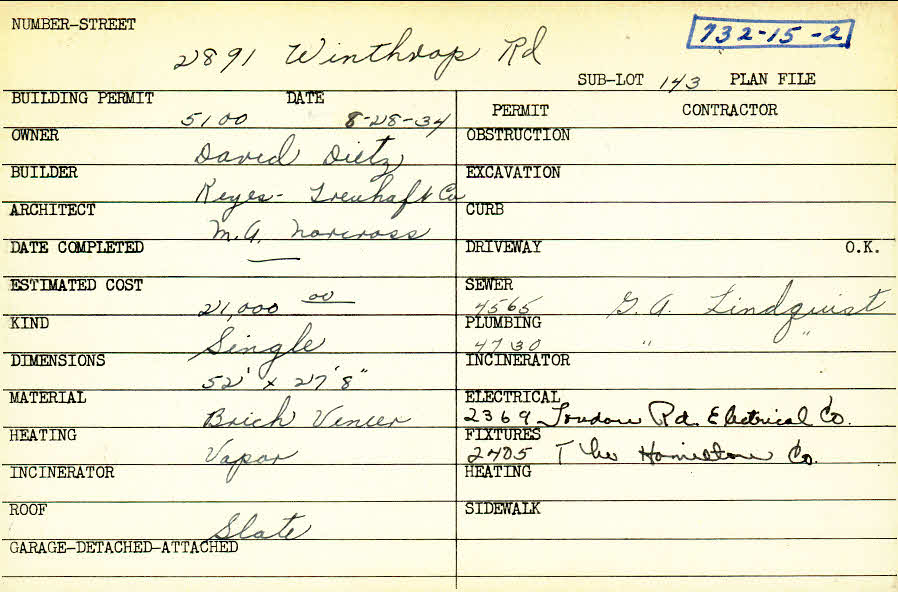 NUMBER-STREET
732-15-2
2891 Winthrop Rd
SUB-LOT 143 PLAN FILE
BUILDING PERMIT DATE
5100 8-28-34
PERMIT CONTRACTOR
OWNER
David Dietz
OBSTRUCTION
BUILDER
Keyes- Treuhaft Co
EXCAVATION
ARCHITECT
M.A. Norcross
CURB
DATE COMPLETED
DRIVEWAY O.K.
ESTIMATED COST
21,000 00
SEWER
4565 G.A. Lindquist
KIND
Single
PLUMBING
4730 " "
DIMENSIONS
52' x 27'8"
INCINERATOR
MATERIAL
Brick Veneer
ELECTRICAL
2369 Rd. Electrical Co.
HEATING
Vapor
FIXTURES
2405 The Co.
INCINERATOR
HEATING
ROOF
Slate
SIDEWALK
GARAGE-DETACHED-ATTACHED